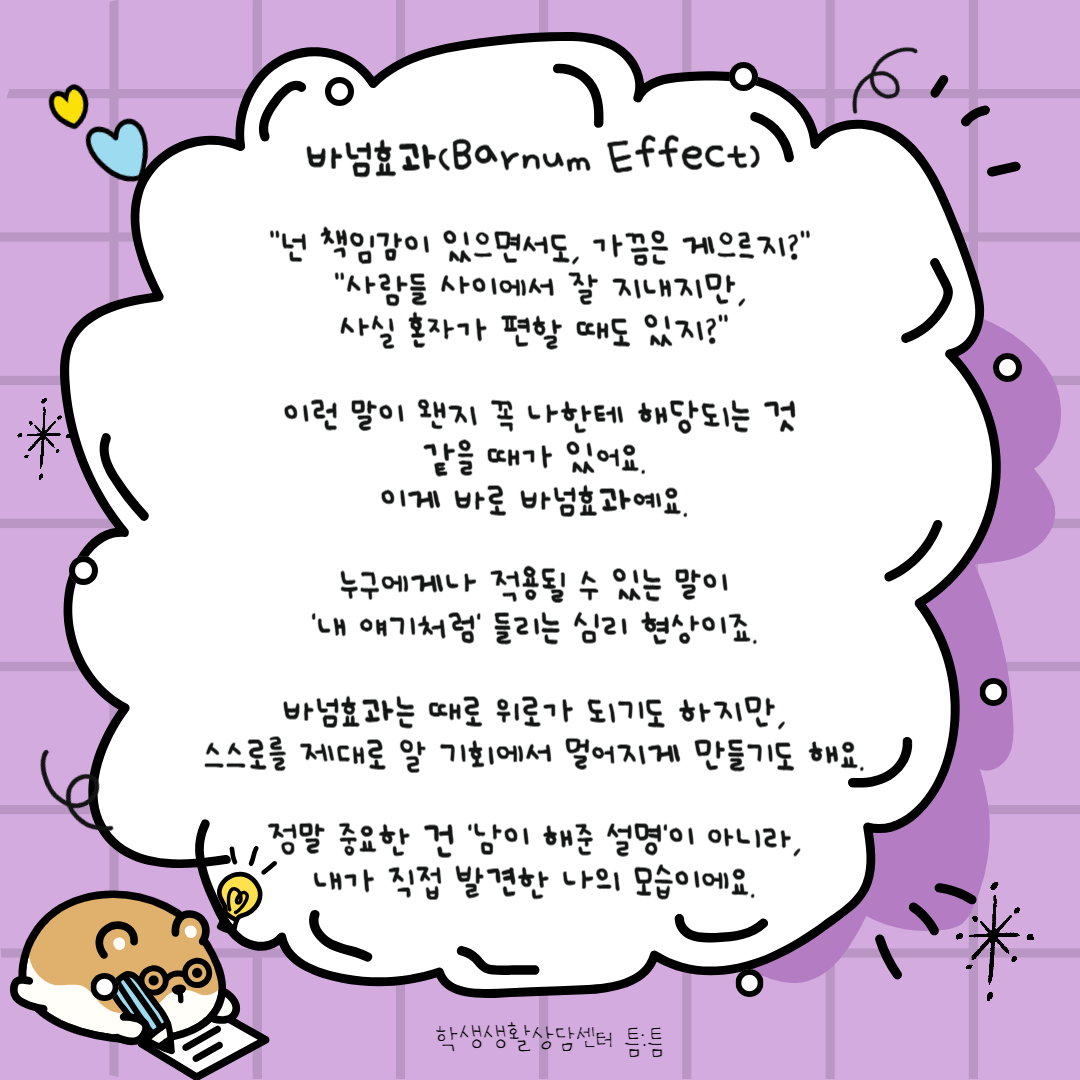 바넘효과(Barnum Effect)
"넌 책임감이 있으면서도, 가끔은 게으르지?"
"사람들 사이에서 잘 지내지만,
사실 혼자가 편할 때도 있지?"
이런 말이 왠지 꼭 나한테 해당되는 것
같을 때가 있어요.
이게 바로 바넘효과예요.
누구에게나 적용될 수 있는 말이
'내 얘기처럼' 들리는 심리 현상이죠.
바넘효과는 때로 위로가 되기도 하지만,
스스로를 제대로 알 기회에서 멀어지게 만들기도 해요.
정말 중요한 건 '남이 해준 설명'이 아니라,
내가 직접 발견한 나의 모습이에요.
학생생활상담센터 틈:틈